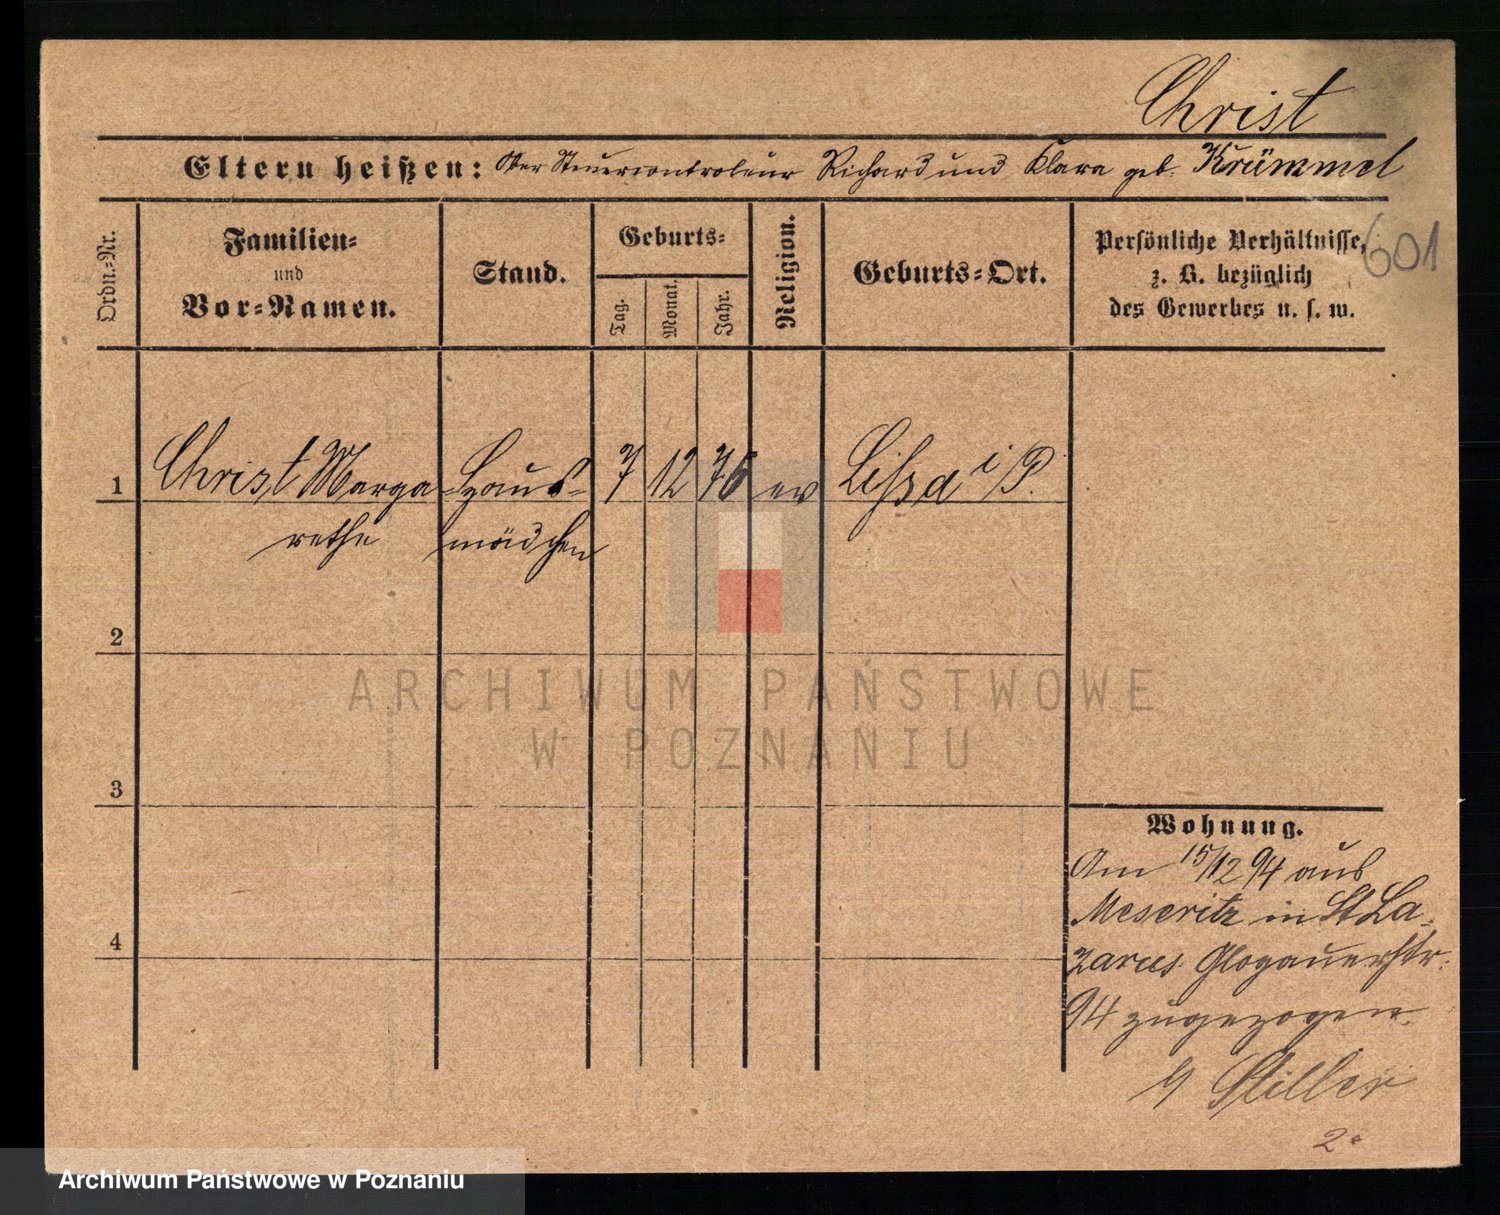 Christ
Eltern heißen: Ober Steuercontroleur Richard und Klara geb. Krümmel
Ordn.-Nr.
Familien-
und
Vor-Namen.
Stand.
Geburts-
Tag.
Monat.
Jahr.
Religion.
Geburts-Ort.
Persönliche Verhältnisse,
z. B. bezüglich
des Gewerbes u. s. w.
601
1 Christ Marga Haus- 7 12 76 ev Lissa i/P.
rethe mädchen
2
3
4
Wohnung.
Am 15/12 94 aus
Meseritz in St La-
zarus Glogauerstr.
94 zugezogen.
b/ Stiller
2.
ARCHIWUM PAŃSTWOWE
W POZNANIU
Archiwum Państwowe w Poznaniu